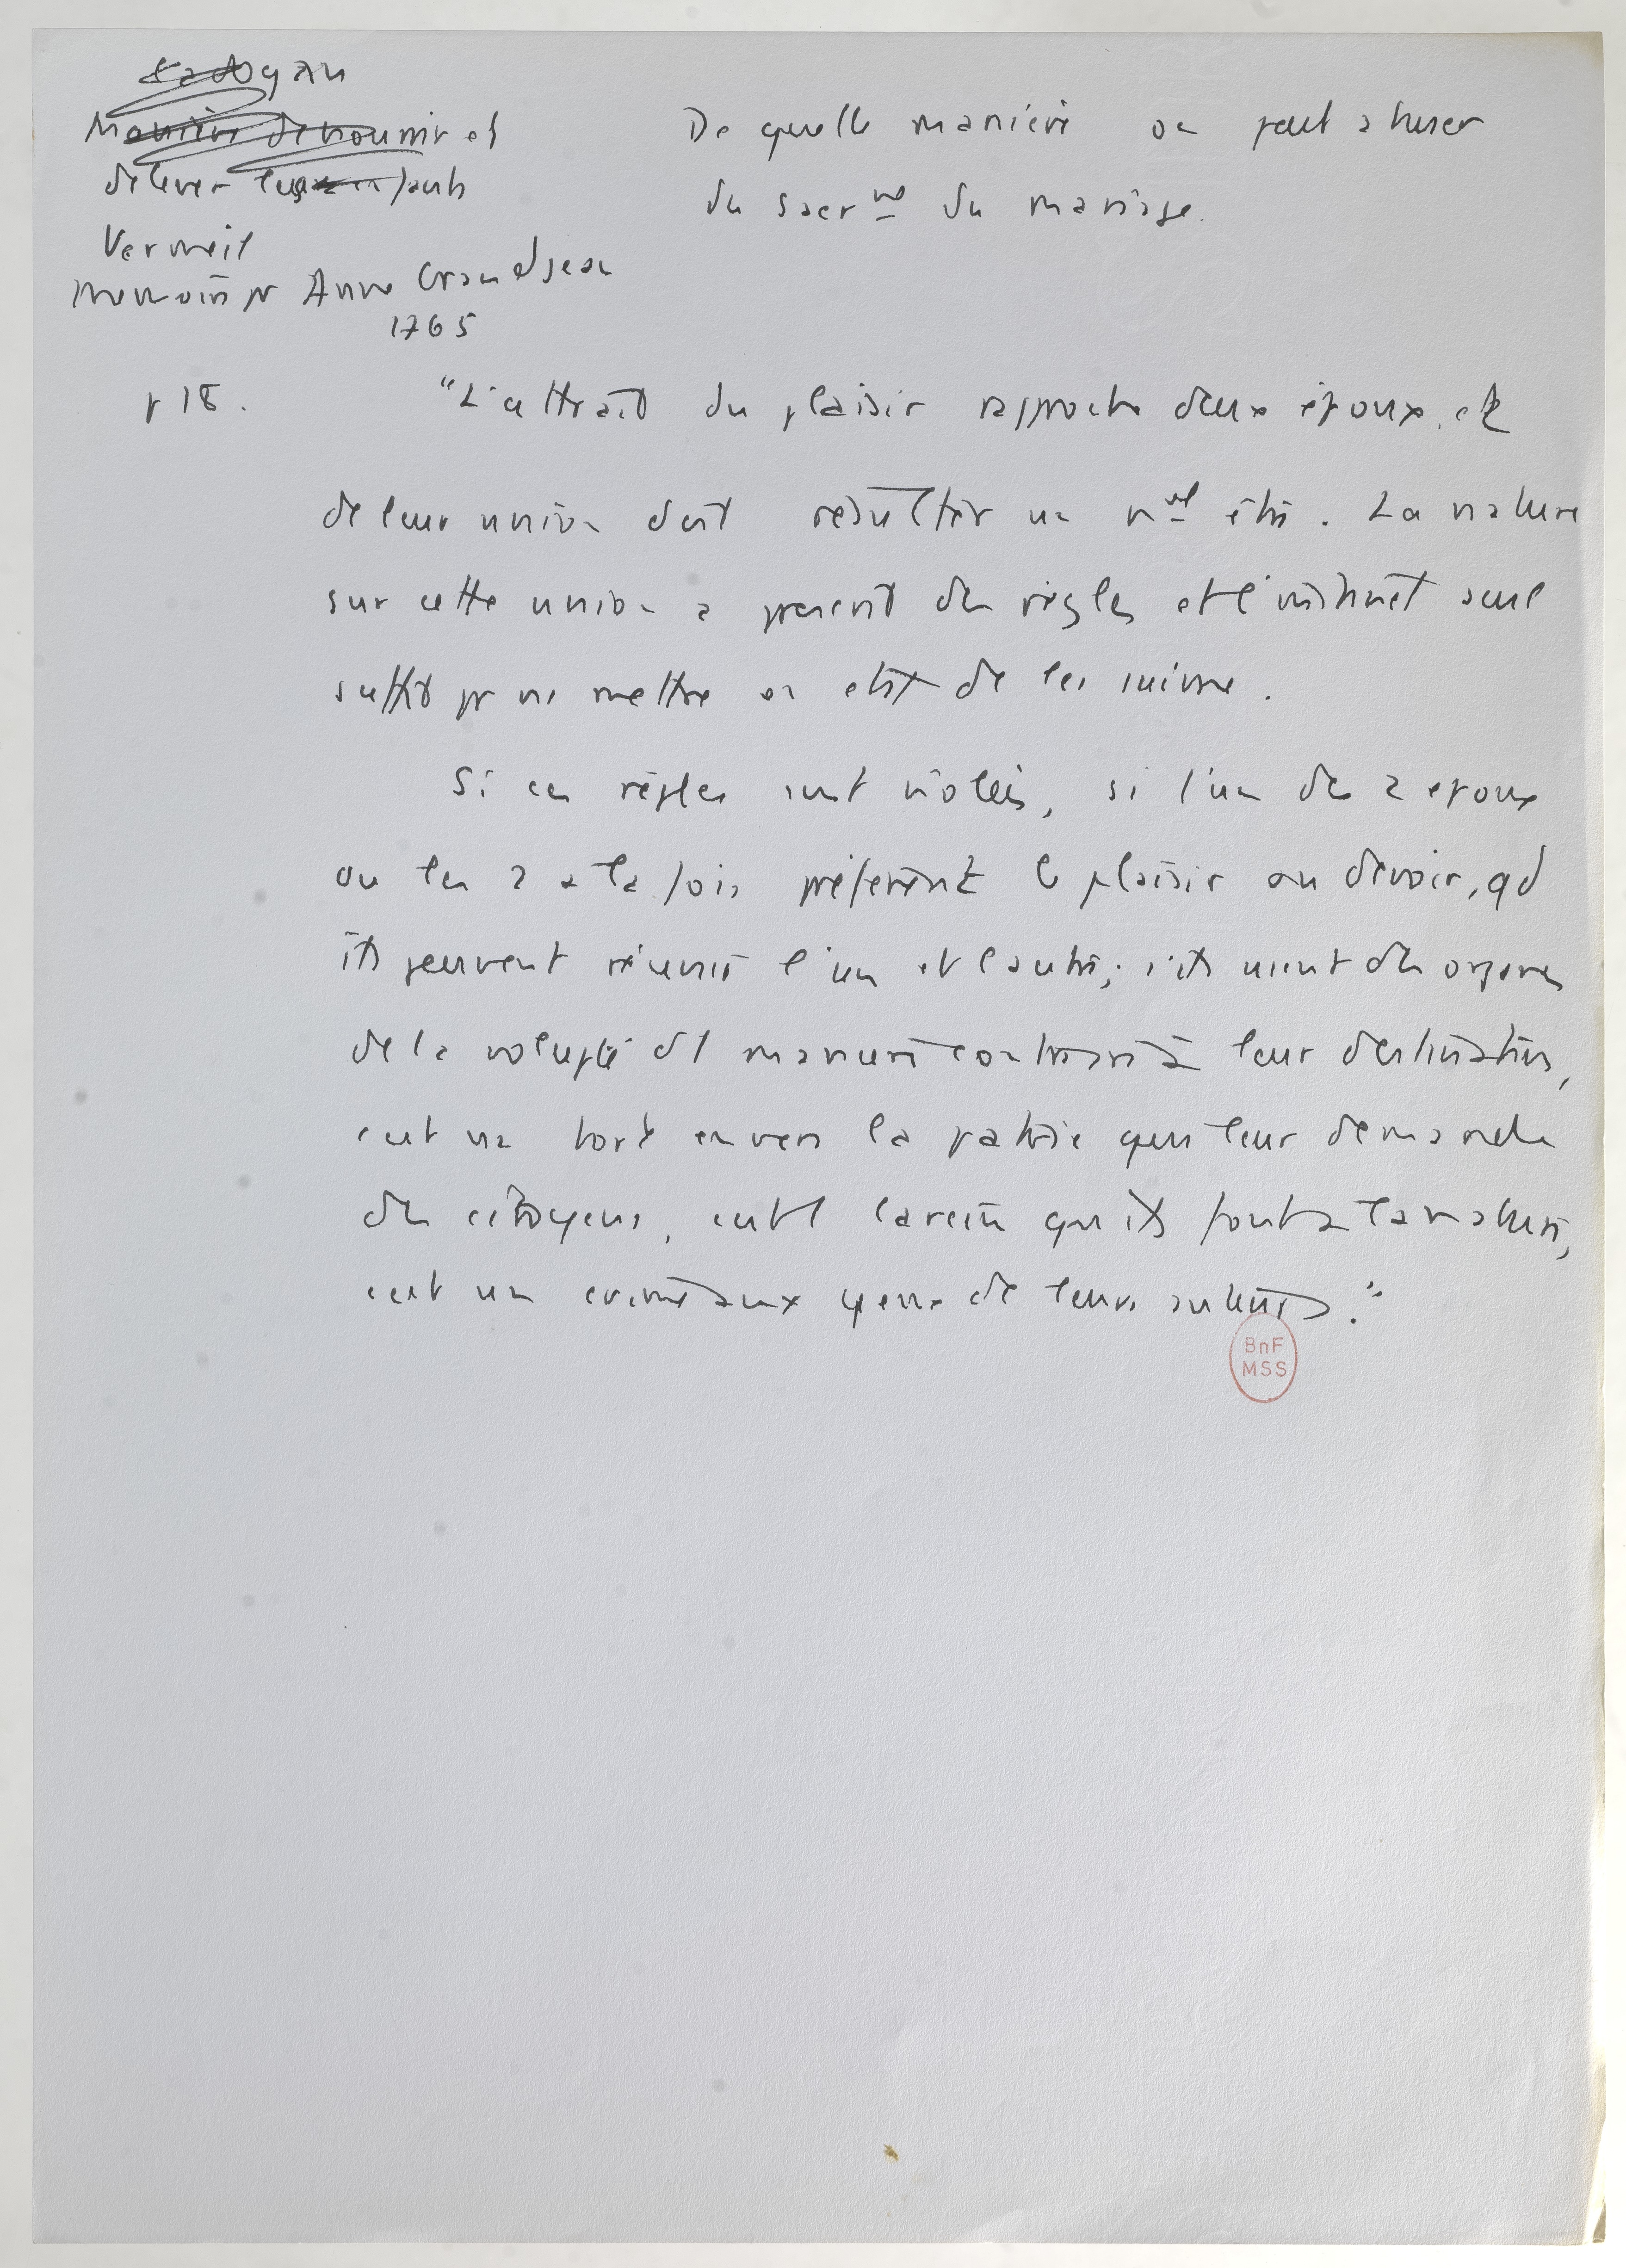 Cadogan
Manière de nourrir et
d'élever les enfants
Vermeil
Memoire pr Anne Grandjean
1765
De quelle manière on peut abuser
du sacrnt du mariage.
p 18.
"L'attrait du plaisir rapproche deux époux, et
de leur union doit résulter un nvel être. La nature
sur cette union a prescrit des règles et l'instinct seul
suffit pr ns mettre en état de les suivre.
Si ces règles sont violées, si l'un des 2 epoux
ou les 2 a la fois préfèrent le plaisir au devoir, qd
ils peuvent réunir l'un et l'autre; s'ils usent des organes
de la volupté d'1 manière contraire à leur destination,
c'est un tort envers la patrie qui leur demande
des citoyens, c'est 1 larcin qu'ils font a la nature,
c'est un crime aux yeux de leurs auteurs."
BnF
MSS